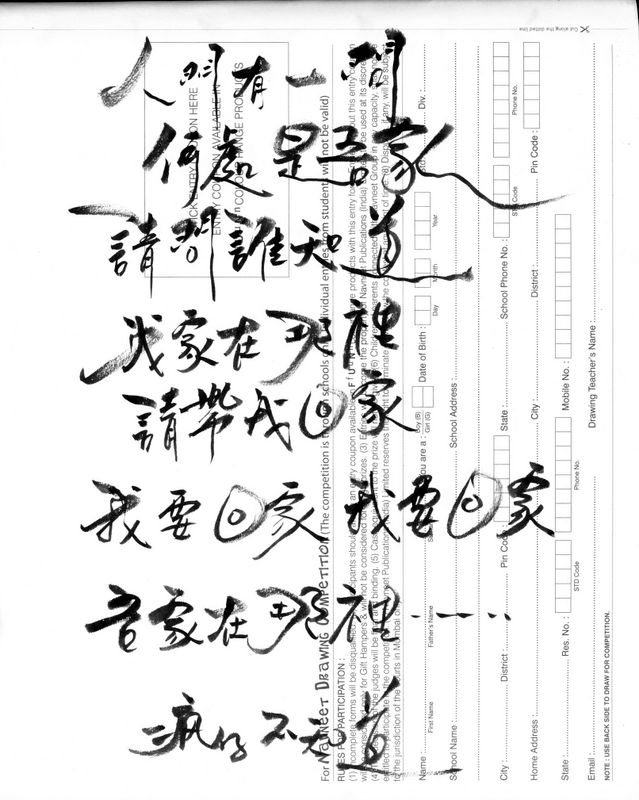 人間有一問
何處是吾家
請問誰知道
我家在那裡
請帶我回家
我要回家 我要回家
吾家在那裡......
瘋仔不知道
Cut along the dotted line
For NAVNEET DRAWING COMPETITION (The competition is through schools only. Individual entries from students will not be valid)
RULES FOR PARTICIPATION :
Name :
First Name
Father's Name
Div. :
You are a : Boy (B) Girl (G)
Date of Birth :
Day
Month
Year
School Name :
School Address :
City :
District :
Pin Code
State :
School Phone No. :
STD Code
Phone No.
Home Address :
City :
District :
Pin Code :
State :
Res. No. :
STD Code
Phone No.
Mobile No. :
Email :
Drawing Teacher's Name :
NOTE : USE BACK SIDE TO DRAW FOR COMPETITION.